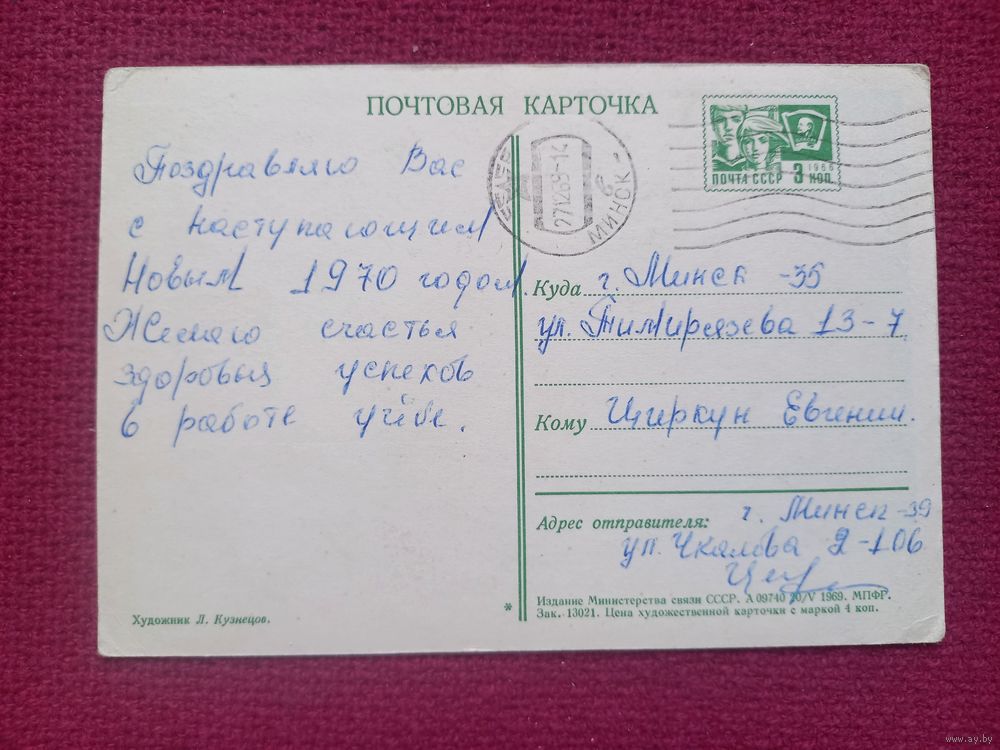 ПОЧТОВАЯ КАРТОЧКА
Поздравляю Вас
с наступающим
Новым 1970 годом.
Желаю счастья
здоровья успехов
в работе учёбе.
Художник Л. Кузнецов.
*
271269-14
МИНСК
в
ПОЧТА СССР 3 КОП.
1966
Куда г. Минск -35
ул. Тимирязева 13-7
Кому Циркун Евгении.
Адрес отправителя: г. Минск -39
ул. Чкалова 2-106
Издание Министерства связи СССР. А 09740 20/V 1969. МПФГ.
Зак. 13021. Цена художественной карточки с маркой 4 коп.
www.ay.by